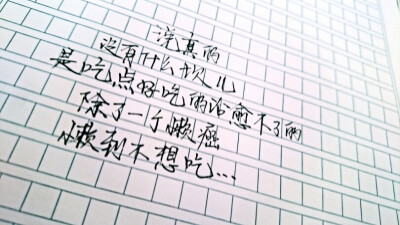 说真的
没有什么烦心事儿
是吃点好吃的治愈不了的
除了一个懒癌
懒到不想吃...